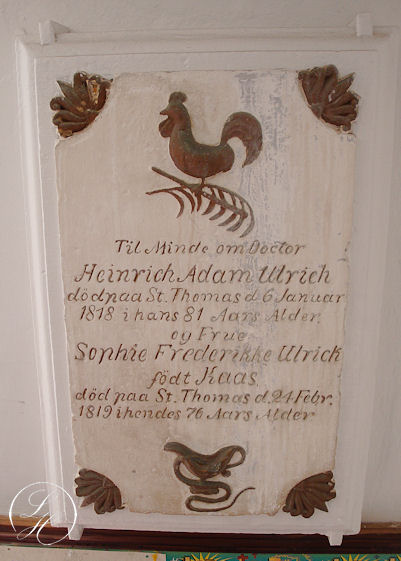 Til Minde om Doctor
Heinrich Adam Ulrich
död paa St. Thomas d 6 Januar
1818 i hans 81 Aars Alder.
og Frue
Sophie Frederikke Ulrick
födt Kaas.
död paa St. Thomas d. 24 Febr.
1819 i hendes 76 Aars Alder
LH